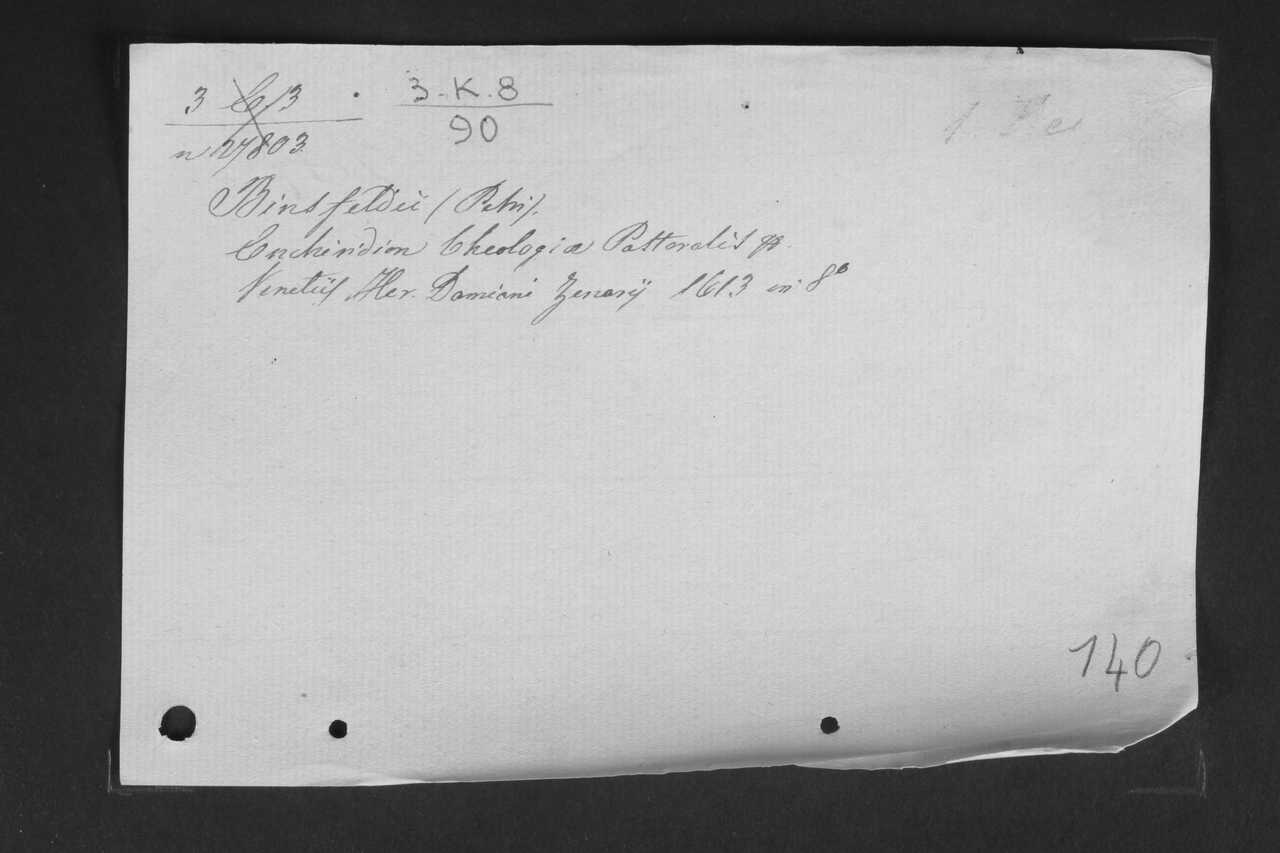 3 C 13 3-K-8
n 27803 90
Binsfeldii (Petri).
Enchiridion Theologiæ Pastoralis
Venetiis Her. Damiani Zenarij 1613 in 8º
140